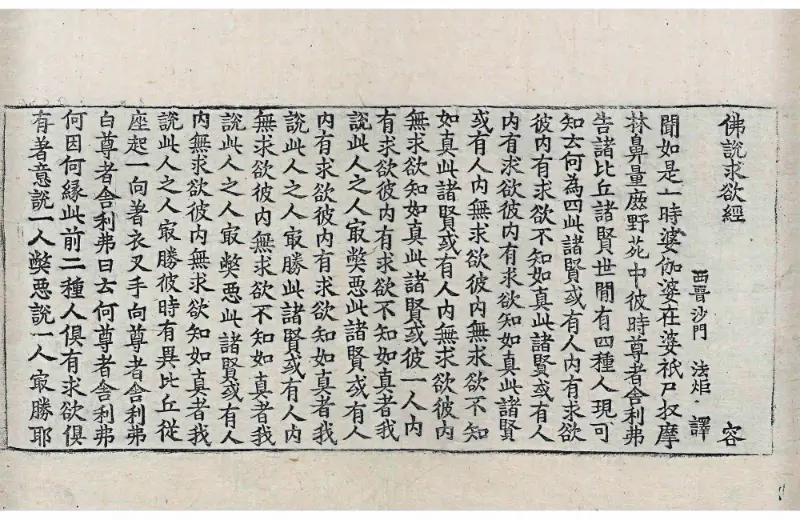 佛說求欲經 容
西晉沙門 法炬 譯
聞如是一時婆伽婆在婆祇尸収摩
林鼻量鹿野苑中彼時尊者舍利弗
告諸比丘諸賢世間有四種人現可
知云何為四此諸賢或有人內有求欲
彼內有求欲不知如真此諸賢或有人
內有求欲彼內有求欲知如真此諸賢
或有人內無求欲彼內無求欲不知
如真此諸賢或有人內無求欲彼內
無求欲知如真此諸賢或彼一人內
有求欲彼內有求欲不知如真者我
說此人之人㝡弊惡此諸賢或有人
內有求欲彼內有求欲知如真者我
說此人之人㝡勝此諸賢或有人內
無求欲彼內無求欲不知如真者我
說此人之人㝡弊惡此諸賢或有人
內無求欲彼內無求欲知如真者我
說此人之人㝡勝彼時有異比丘從
座起一向著衣叉手向尊者舍利弗
白尊者舍利弗曰云何尊者舍利弗
何因何緣此前二種人俱有求欲俱
有著意說一人弊惡說一人㝡勝耶